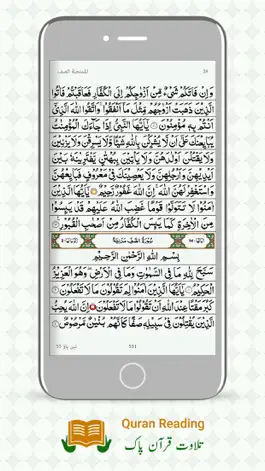 الممتحنة الصف
28
وَإِن فَاتَكُمْ شَىْءٌ مِّنْ أَزْوَٰجِكُمْ إِلَى ٱلْكُفَّارِ فَعَاقَبْتُمْ فَـَٔاتُوا۟
ٱلَّذِينَ ذَهَبَتْ أَزْوَٰجُهُم مِّثْلَ مَآ أَنفَقُوا۟ وَٱتَّقُوا۟ ٱللَّهَ ٱلَّذِىٓ
أَنتُم بِهِۦ مُؤْمِنُونَ يَٰٓأَيُّهَا ٱلنَّبِىُّ إِذَا جَآءَكَ ٱلْمُؤْمِنَٰتُ
يُبَايِعْنَكَ عَلَىٰٓ أَن لَّا يُشْرِكْنَ بِٱللَّهِ شَيْـًٔا وَلَا يَسْرِقْنَ وَلَا يَزْنِينَ
وَلَا يَقْتُلْنَ أَوْلَٰدَهُنَّ وَلَا يَأْتِينَ بِبُهْتَٰنٍ يَفْتَرِينَهُۥ بَيْنَ
أَيْدِيهِنَّ وَأَرْجُلِهِنَّ وَلَا يَعْصِينَكَ فِى مَعْرُوفٍ فَبَايِعْهُنَّ
وَٱسْتَغْفِرْ لَهُنَّ ٱللَّهَ إِنَّ ٱللَّهَ غَفُورٌ رَّحِيمٌ يَٰٓأَيُّهَا ٱلَّذِينَ
ءَامَنُوا۟ لَا تَتَوَلَّوْا۟ قَوْمًا غَضِبَ ٱللَّهُ عَلَيْهِمْ قَدْ يَئِسُوا۟
مِنَ ٱلْـَٔاخِرَةِ كَمَا يَئِسَ ٱلْكُفَّارُ مِنْ أَصْحَٰبِ ٱلْقُبُورِ
سُورَةُ الصَّفِّ مَدَنِيَّة
بِسْمِ ٱللَّهِ ٱلرَّحْمَٰنِ ٱلرَّحِيمِ
سَبَّحَ لِلَّهِ مَا فِى ٱلسَّمَٰوَٰتِ وَمَا فِى ٱلْأَرْضِ وَهُوَ ٱلْعَزِيزُ
ٱلْحَكِيمُ يَٰٓأَيُّهَا ٱلَّذِينَ ءَامَنُوا۟ لِمَ تَقُولُونَ مَا لَا تَفْعَلُونَ
كَبُرَ مَقْتًا عِندَ ٱللَّهِ أَن تَقُولُوا۟ مَا لَا تَفْعَلُونَ إِنَّ ٱللَّهَ يُحِبُّ
ٱلَّذِينَ يُقَٰتِلُونَ فِى سَبِيلِهِۦ صَفًّا كَأَنَّهُم بُنْيَٰنٌ مَّرْصُوصٌ
551
Quran Reading
تلاوت قرآن پاک